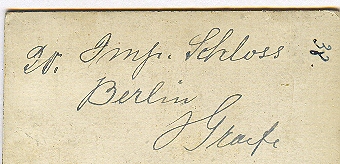 Imp. Schloss
Berlin
Graefe